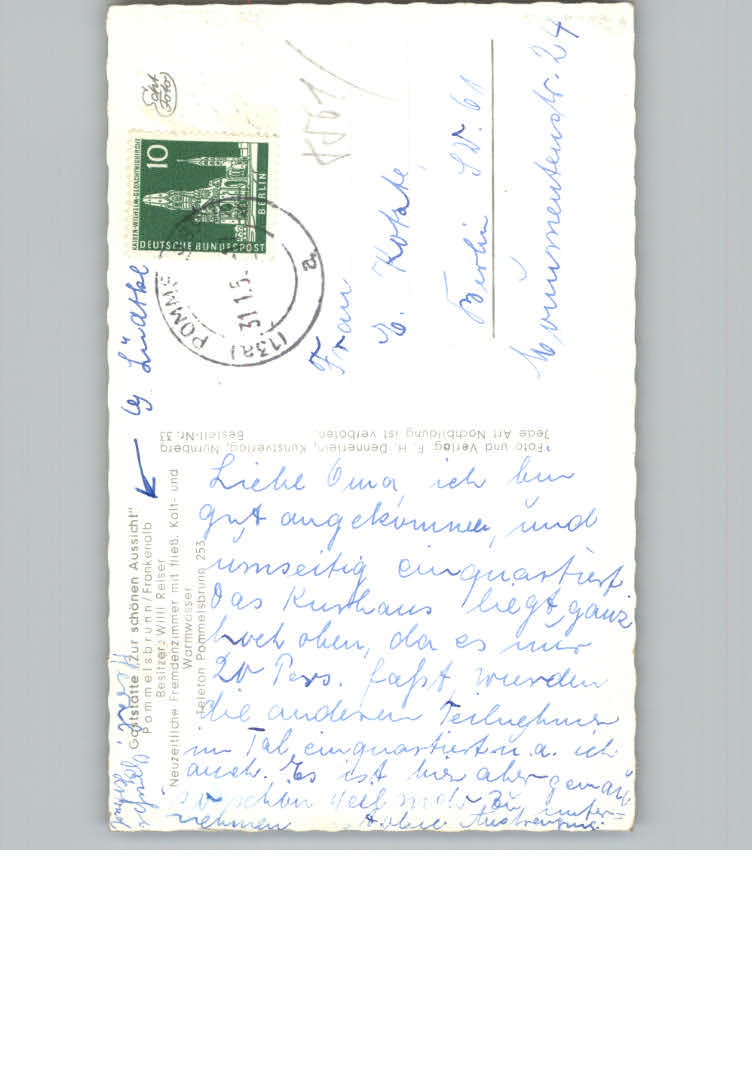 Echt
Foto
KAISER-WILHELM-GEDÄCHTNISKIRCHE
10
BERLIN
DEUTSCHE BUNDESPOST
(13a) POMME
31.1.5
a
Frau
E.
Berlin SW. 61
Monumentenstr. 24
Lüdtke
Gaststätte „Zur schönen Aussicht"
Pommelsbrunn/Frankenalb
Besitzer: Willi Reiser
Neuzeitliche Fremdenzimmer mit fließ. Kalt- und
Warmwasser
Telefon Pommelsbrunn 253
Foto und Verlag: F. H. Dennerlein, Kunstverlag, Nürnberg
Jede Art Nachbildung ist verboten. Bestell-Nr. 33
Liebe Oma, ich bin
gut angekommen, und
umseitig einquartiert
Das Kurhaus liegt ganz
hoch oben, da es nur
20 Pers. faßt, wurden
die anderen Teilnehmer
im Tal einquartiert u. a. ich
auch. Es ist hier aber genau
so schön weil mehr zu unter=
nehmen ohne Anstrengung.